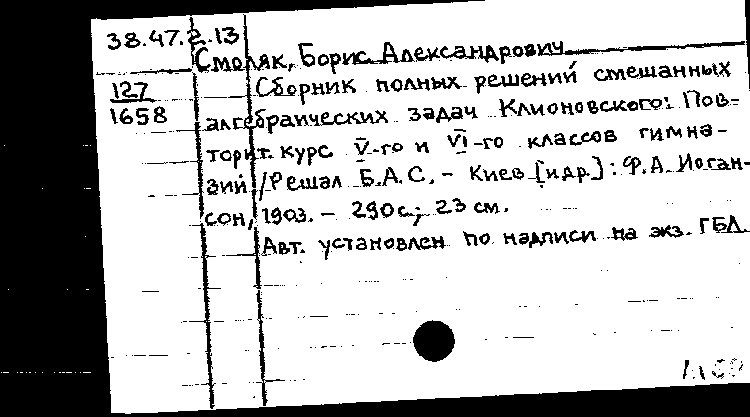 38.47.2.13
Смоляк, Борис Александрович
127
1658
Сборник полных решений смешанных
алгебраических задач Клионовского: Пов-
торит. курс V-го и VI-го классов гимна-
зий /Решал Б.А.С. - Киев [и др.] : Ф.А. Иоган-
сон, 1903. - 290 с.; 23 см.
Авт. установлен по надписи на экз. ГБЛ.